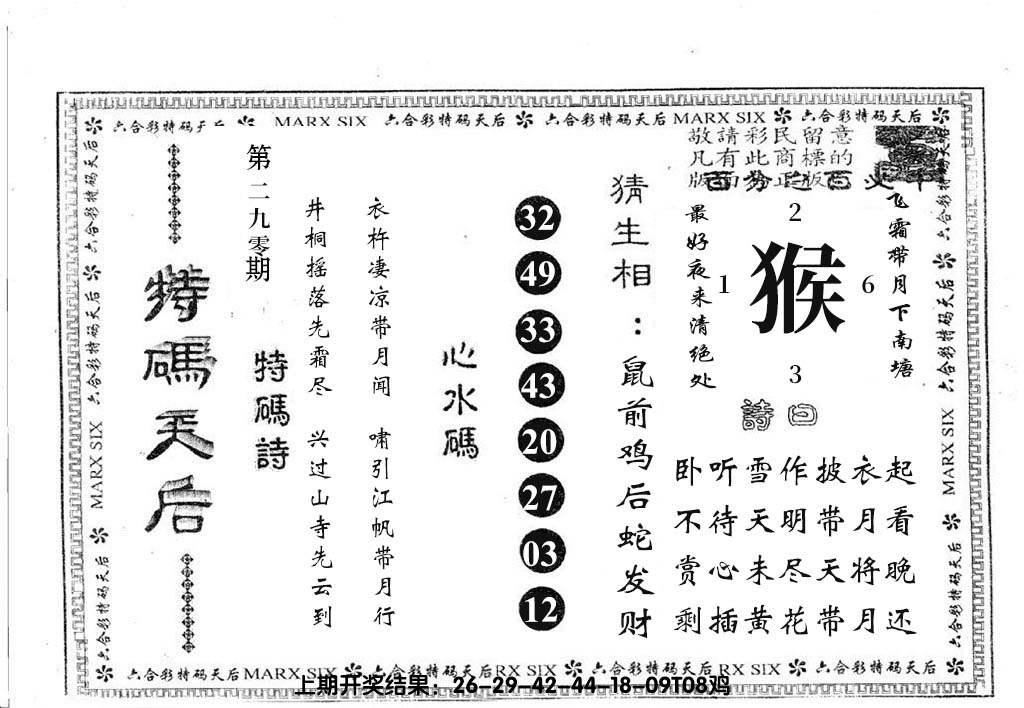 六合彩特码天后 MARX SIX 六合彩特码天后 六合彩特码天后 MARX SIX 六合彩特码天后
敬請彩民留意
凡有此商標的
版面为正版
2
1 猴 6
3
飞霜带月下南塘
最好夜来清绝处
诗曰
卧听雪作披衣起
不待天明带月看
赏心未尽天将晚
剩插黄花带月还
猜生相：鼠前鸡后蛇发财
32
49
33
43
20
27
03
12
心水碼
衣杵凄凉带月闻 啸引江帆带月行
井桐摇落先霜尽 兴过山寺先云到
特碼詩
第二九零期
特碼天后
六合彩特码天后 MARX SIX 六合彩特码天后
六合彩特码天后 MARX SIX 六合彩特码天后
六合彩特码天后 MARX SIX 六合彩特码天后 RX SIX 六合彩特码天后 RX SIX 六合彩特码天后
上期开奖结果：26-29-42-44-18-09T08鸡